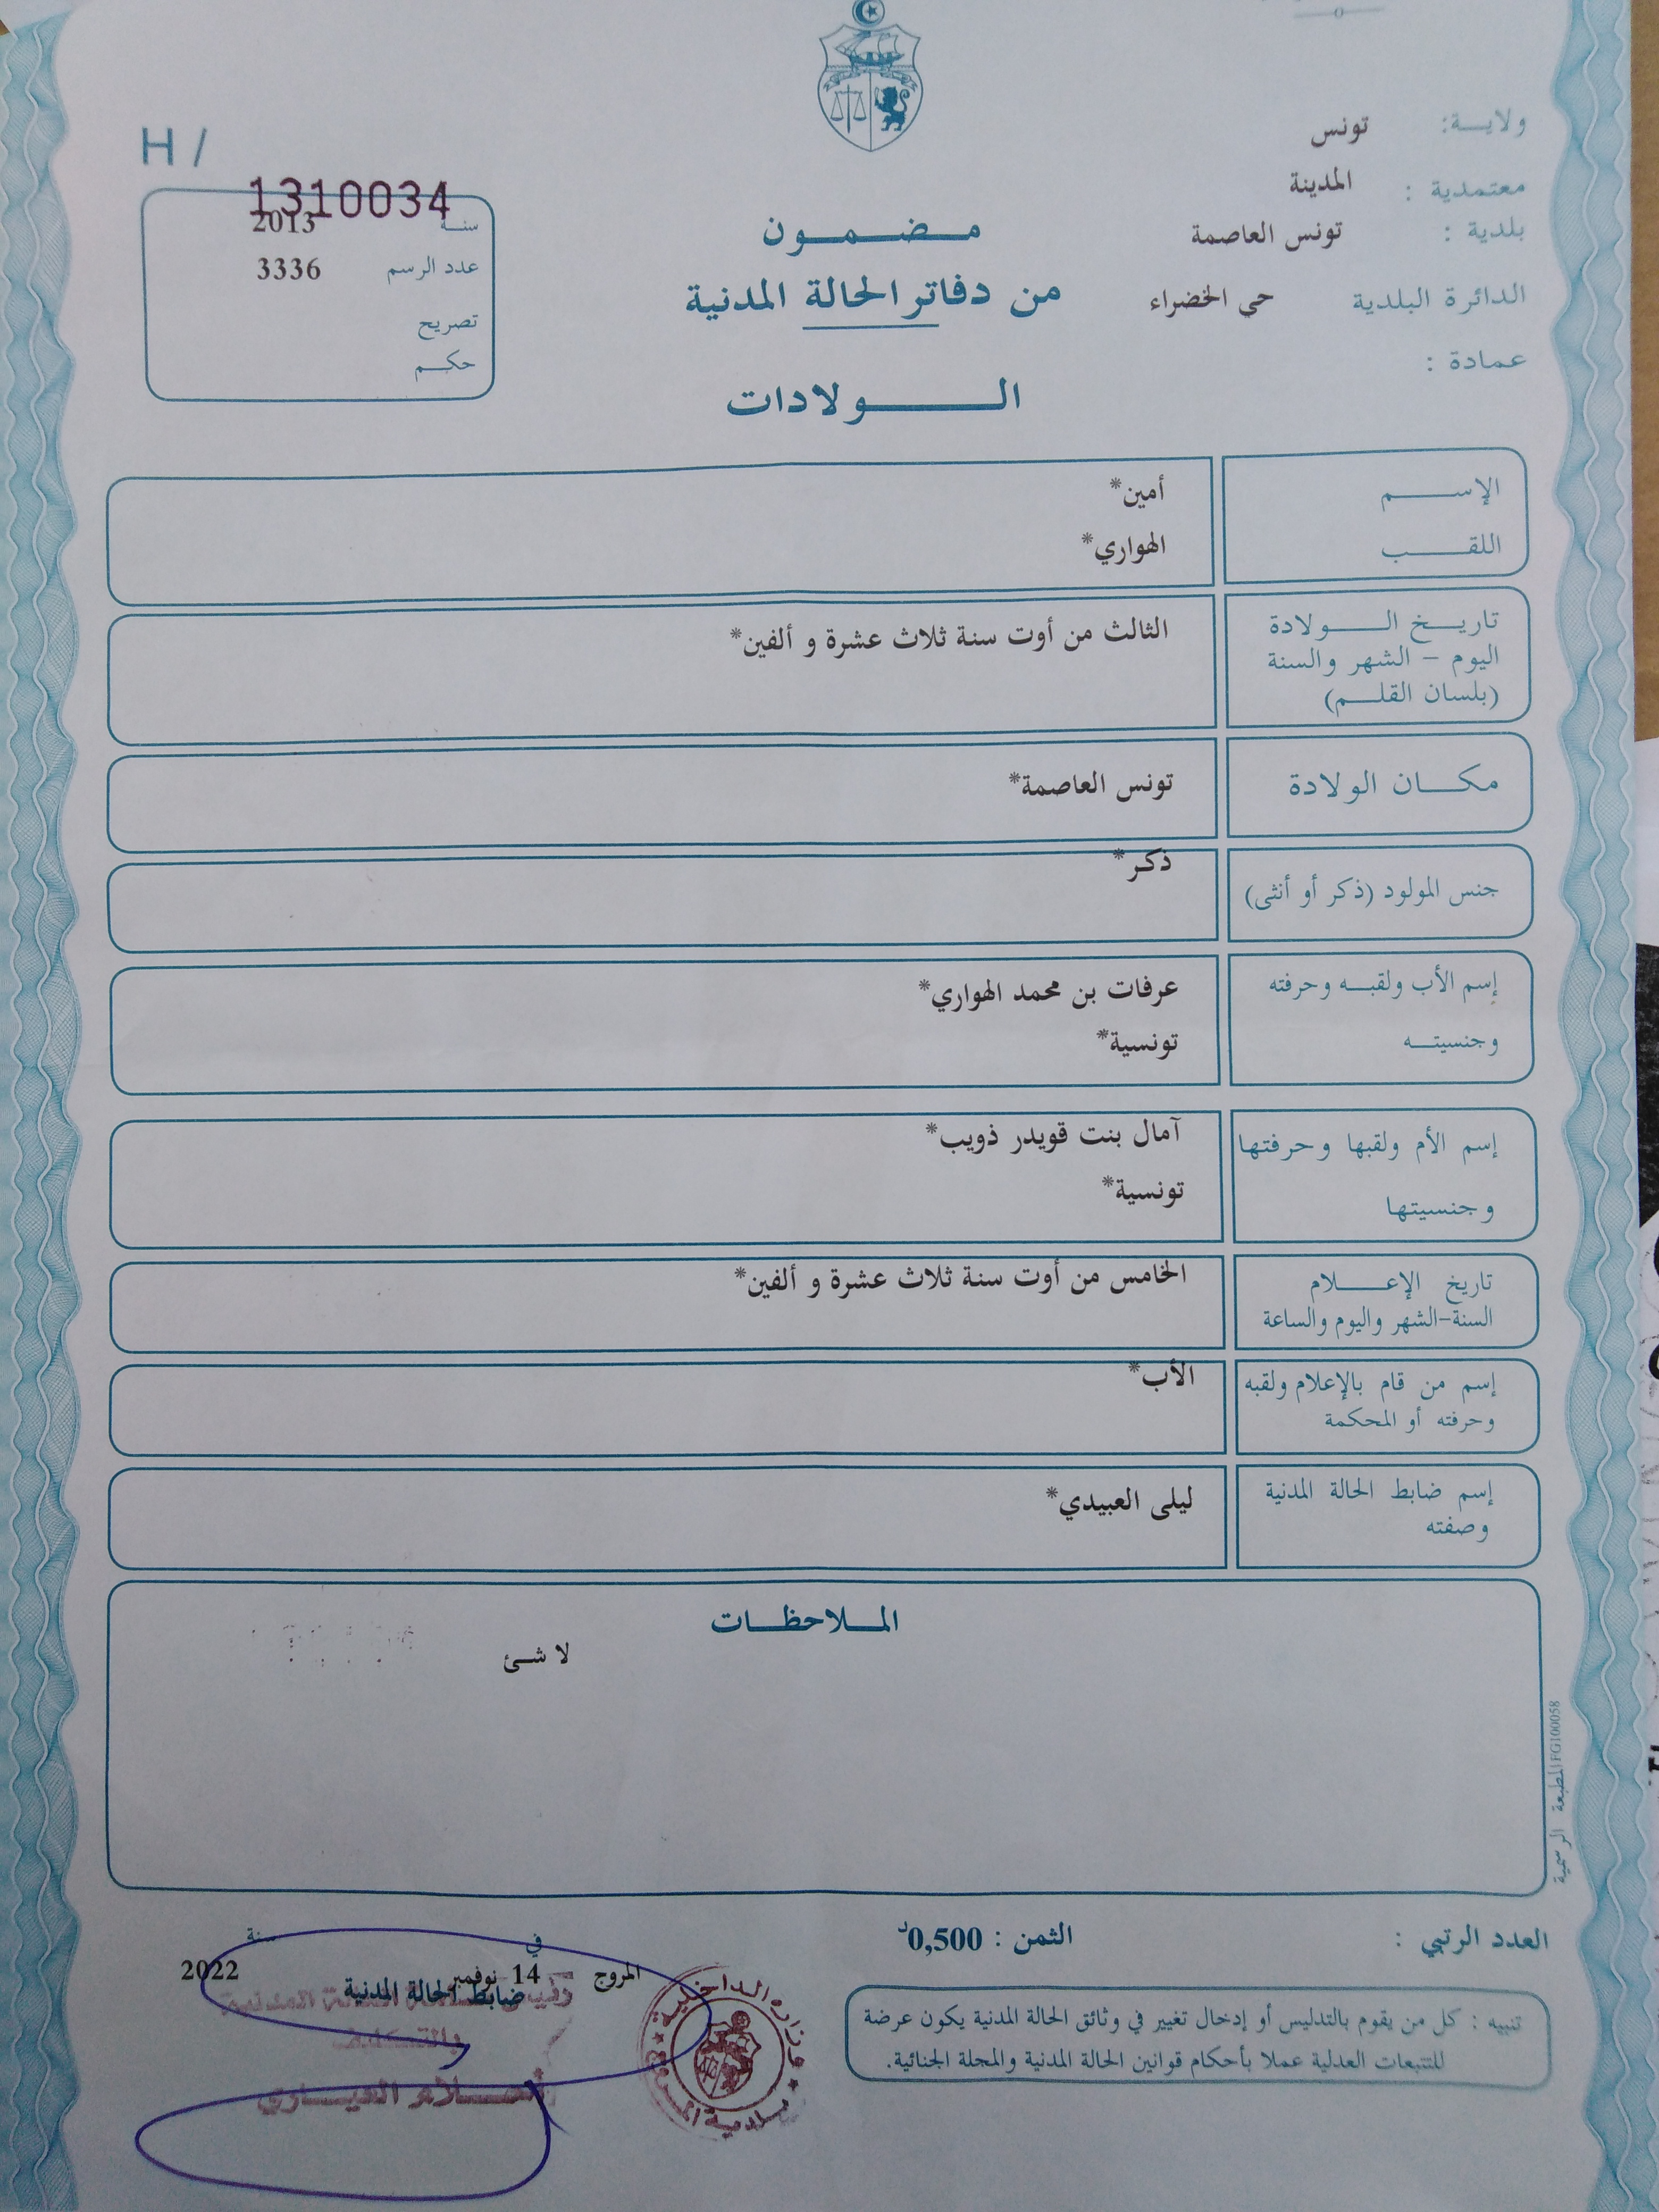 ولاية: تونس
معتمدية : المدينة
بلدية : تونس العاصمة
الدائرة البلدية حي الخضراء
عمادة :
H /
1310034
سنة 2013
عدد الرسم 3336
تصريح
حكم
مضمون
من دفاتر الحالة المدنية
الولادات
الإسم أمين*
اللقب الهواري*
تاريخ الولادة
اليوم – الشهر والسنة
(بلسان القلم)
الثالث من أوت سنة ثلاث عشرة و ألفين*
مكان الولادة تونس العاصمة*
جنس المولود (ذكر أو أنثى) ذكر*
إسم الأب ولقبه وحرفته عرفات بن محمد الهواري*
وجنسيته تونسية*
إسم الأم ولقبها وحرفتها آمال بنت قويدر ذويب*
وجنسيتها تونسية*
تاريخ الإعلام
السنة-الشهر واليوم والساعة
الخامس من أوت سنة ثلاث عشرة و ألفين*
إسم من قام بالإعلام ولقبه
وحرفته أو المحكمة
الأب*
إسم ضابط الحالة المدنية
وصفته
ليلى العبيدي*
الملاحظات
لا شئ
المطبعة الرسمية FG100058
العدد الرتبي :
الثمن : 0,500د
في سنة
المروج 14 نوفمبر 2022
ضابط الحالة المدنية
تنبيه : كل من يقوم بالتدليس أو إدخال تغيير في وثائق الحالة المدنية يكون عرضة
للتتبعات العدلية عملا بأحكام قوانين الحالة المدنية والمجلة الجنائية.
وزارة الداخلية
بلدية المروج